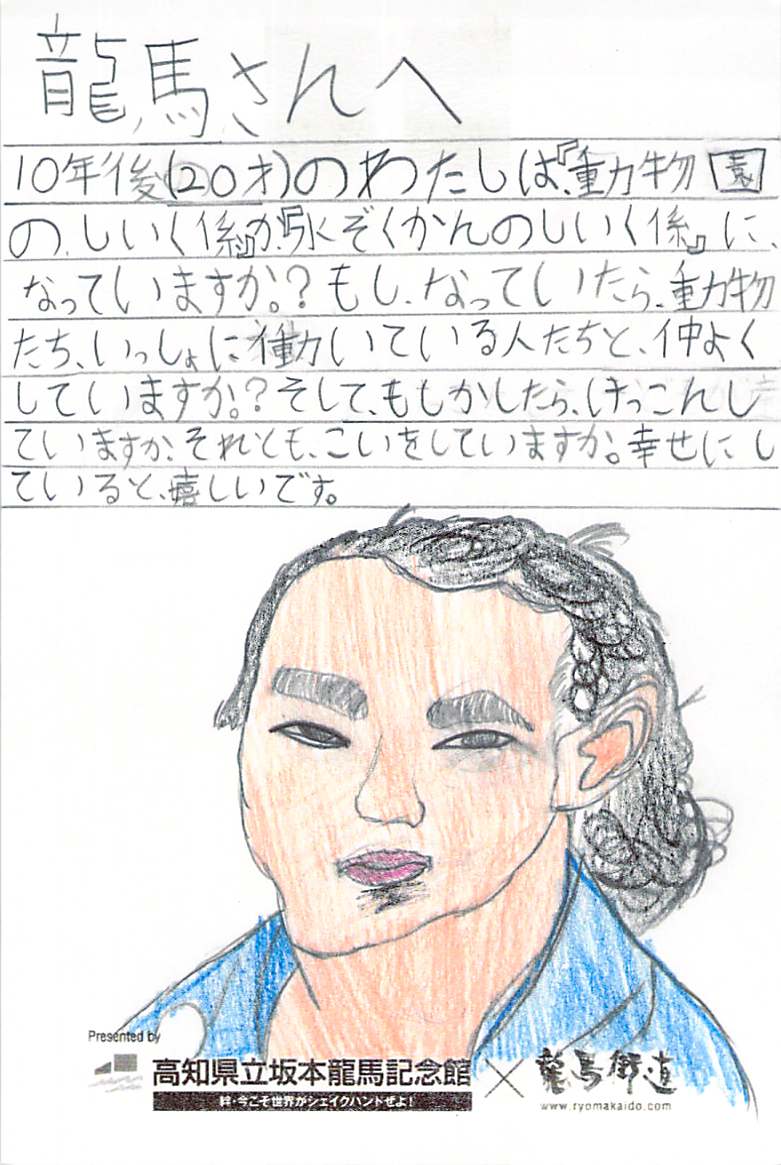 龍馬さんへ
10年後(20才)のわたしは、『動物園
の、しいく係』か『水ぞくかんのしいく係』に、
なっていますか。?もし、なっていたら、動物
たち、いっしょに働いている人たちと、仲よく
していますか。?そして、もしかしたら、けっこんし
ていますか、それとも、こいをしていますか。幸せにし
ていると、嬉しいです。
Presented by
高知県立坂本龍馬記念館×龍馬街道
絆・今こそ世界がシェイクハンドぜよ!
www.ryomakaido.com